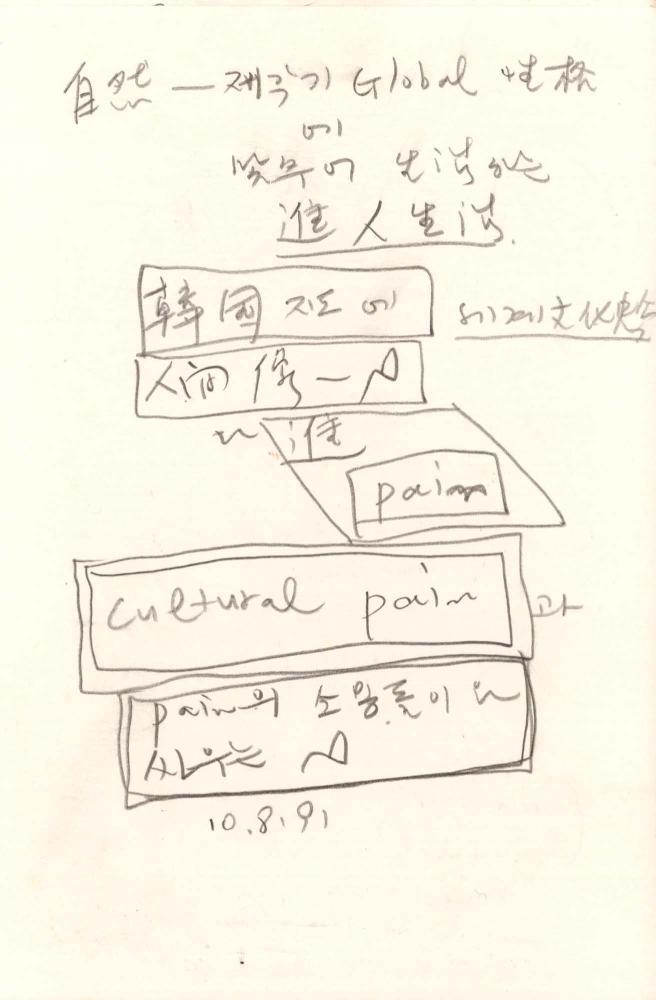 自然 — 제각기 Global 性格
에
生活하는
進人生活.
韓國 지도에
세계文化
人間像 —
進
pain
cultural pain 과
pain의 소용돌이
싸우는
10.8.91